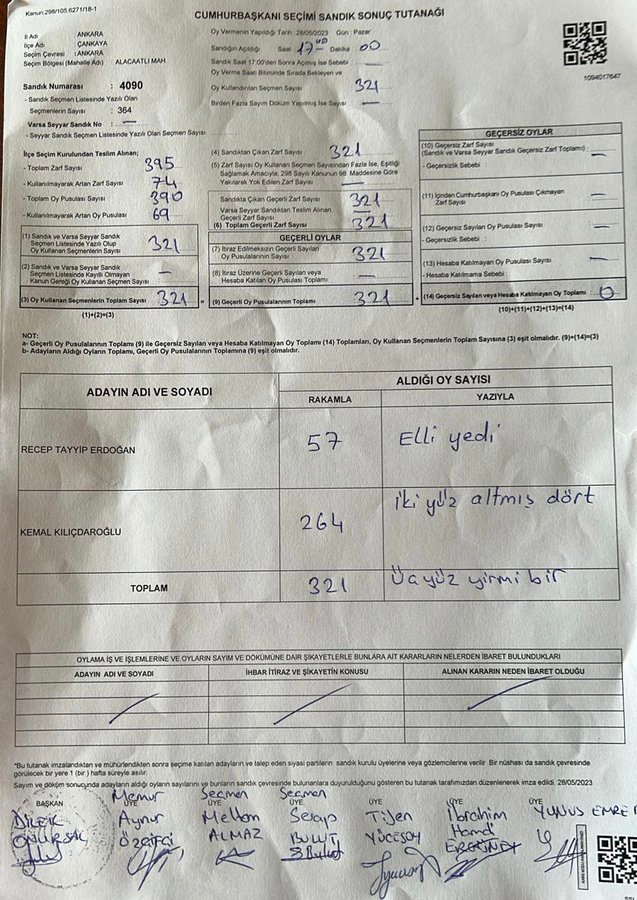 Kanun:298/105,6271/18-1
CUMHURBAŞKANI SEÇİMİ SANDIK SONUÇ TUTANAĞI
İl Adı : ANKARA
İlçe Adı : ÇANKAYA
Seçim Çevresi : ANKARA
Seçim Bölgesi (Mahalle Adı) : ALACAATLI MAH.
Sandık Numarası : 4090
- Sandık Seçmen Listesinde Yazılı Olan
Seçmenlerin Sayısı : 364
Varsa Seyyar Sandık No : —
- Seyyar Sandık Seçmen Listesinde Yazılı Olan Seçmen Sayısı
Oy Vermenin Yapıldığı Tarih : 28/05/2023 Gün : Pazar
Sandığın Açıldığı Saat 17:00 Dakika 00
Sandık Saat 17:00'den Sonra Açılmış İse Sebebi : —
Oy Verme Saati Bitiminde Sırada Bekleyen ve
Oy Kullandırılan Seçmen Sayısı 321
Birden Fazla Sayım Döküm Yapılmış İse Sayısı —
1094017647
İlçe Seçim Kurulundan Teslim Alınan;
- Toplam Zarf Sayısı 395
- Kullanılmayarak Artan Zarf Sayısı 74
- Toplam Oy Pusulası Sayısı 390
- Kullanılmayarak Artan Oy Pusulası 69
(1) Sandık ve Varsa Seyyar Sandık
Seçmen Listesinde Yazılı Olup
Oy Kullanan Seçmenlerin Sayısı 321
(2) Sandık ve Varsa Seyyar Sandık
Seçmen Listesinde Kayıtlı Olmayan
Kanun Gereği Oy Kullanan Seçmenlerin Sayısı —
(3) Oy Kullanan Seçmenlerin Toplam Sayısı 321
(1)+(2)=(3)
(4) Sandıktan Çıkan Zarf Sayısı 321
(5) Zarf Sayısı Oy Kullanan Seçmen Sayısından Fazla İse, Eşitliği
Sağlamak Amacıyla; 298 Sayılı Kanunun 98. Maddesine Göre
Yakılarak Yok Edilen Zarf Sayısı —
Sandıkla Çıkan Geçerli Zarf Sayısı 321
Varsa Seyyar Sandıktan Teslim Alınan
Geçerli Zarf Sayısı —
(6) Toplam Geçerli Zarf Sayısı 321
GEÇERLİ OYLAR
(7) İtiraz Edilmeksizin Geçerli Sayılan
Oy Pusulalarının Sayısı 321
(8) İtiraz Üzerine Geçerli Sayılan veya
Hesaba Katılan Oy Pusulalarının Sayısı —
= (9) Geçerli Oy Pusulalarının Toplamı 321
GEÇERSİZ OYLAR
(10) Geçersiz Zarf Sayısı
(Sandık ve Varsa Seyyar Sandık Geçersiz Zarf Toplamı) —
- Geçersizlik Sebebi :
(11) İçinden Cumhurbaşkanı Oy Pusulası Çıkmayan
Zarf Sayısı —
(12) Geçersiz Sayılan Oy Pusulası Sayısı —
- Geçersizlik Sebebi :
(13) Hesaba Katılmayan Oy Pusulası Sayısı —
- Hesaba Katılmama Sebebi :
+ (14) Geçersiz Sayılan veya Hesaba Katılmayan Oy Toplamı 0
(10)+(11)+(12)+(13)=(14)
NOT:
a- Geçerli Oy Pusulalarının Toplamı (9) ile Geçersiz Sayılan veya Hesaba Katılmayan Oy Toplamı (14) Toplamları, Oy Kullanan Seçmenlerin Toplam Sayısına (3) eşit olmalıdır. (9)+(14)=(3)
b- Adayların Aldığı Oyların Toplamı, Geçerli Oy Pusulalarının Toplamına (9) eşit olmalıdır.
ADAYIN ADI VE SOYADI
ALDIĞI OY SAYISI
RAKAMLA YAZIYLA
RECEP TAYYİP ERDOĞAN 57 Elli yedi
KEMAL KILIÇDAROĞLU 264 iki yüz altmış dört
TOPLAM 321 Üçyüz yirmi bir
OYLAMA İŞ VE İŞLEMLERİNE VE OYLARIN SAYIM VE DÖKÜMÜNE DAİR ŞİKAYETLERLE BUNLARA AİT KARARLARIN NELERDEN İBARET BULUNDUKLARI
ADAYIN ADI VE SOYADI İHBAR İTİRAZ VE ŞİKAYETİN KONUSU ALINAN KARARIN NEDEN İBARET OLDUĞU
*Bu tutanak imzalandıktan ve mühürlendikten sonra seçime katılan adayların ve talep eden siyasi partilerin sandık kurulu üyelerine veya gözlemcilerine verilir. Bir nüshası da sandık çevresinde
görülecek bir yere 1 (bir) hafta süreyle asılır.
Sayım ve döküm sonucunda adayların aldığı oyların sayılarını ve bunların sandık çevresinde bulunanlara duyurulduğunu gösteren bu tutanak tarafımızdan düzenlenerek imza edildi. 28/05/2023
Memur Seçmen Seçmen
BAŞKAN ÜYE ÜYE ÜYE ÜYE ÜYE
DİLEK Aynur Meltem Serap Tijen İbrahim YUNUS EMRE
ÖZÇİFÇİ ALMAZ BULUT YÜCESOY Hamdi